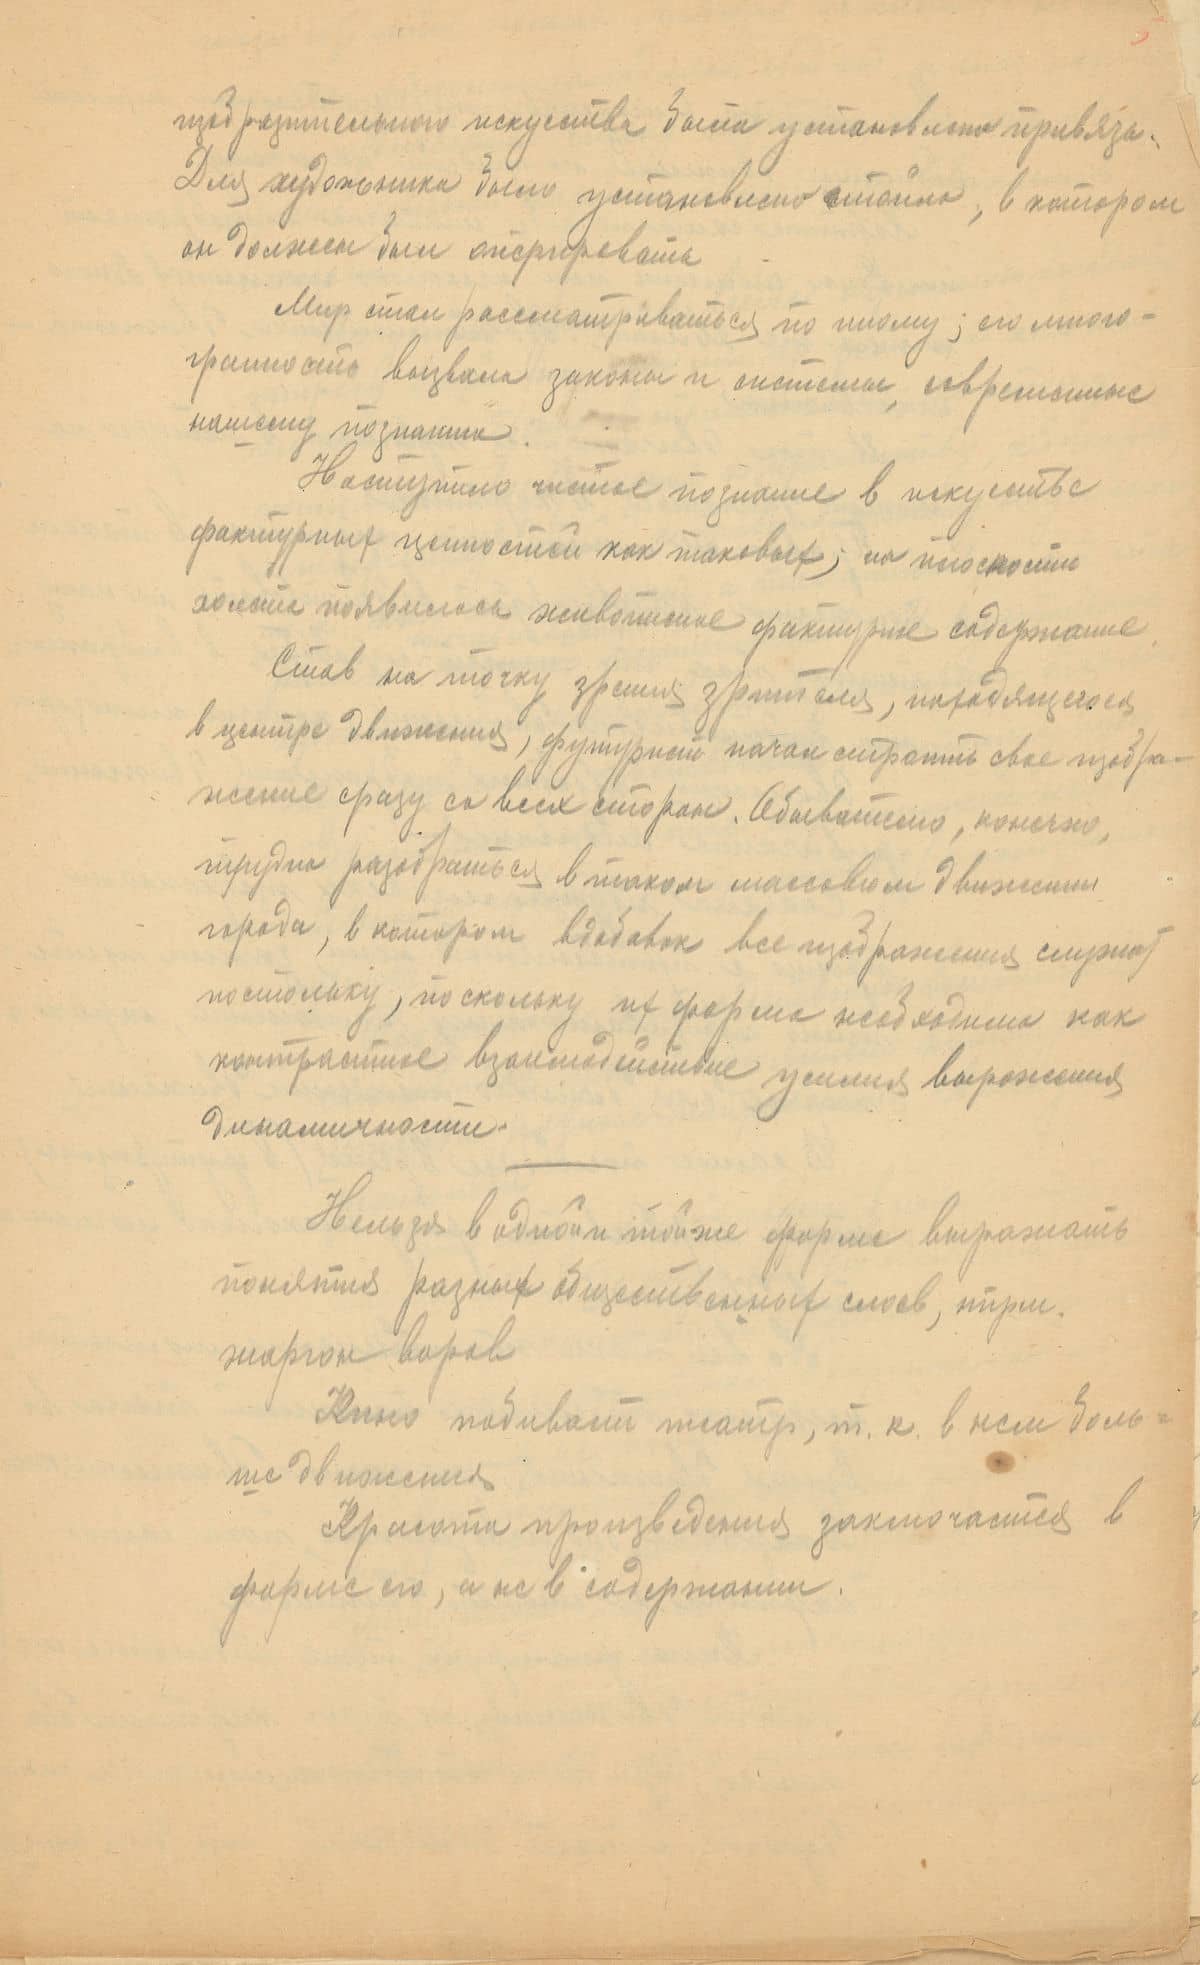 изобразительного искусства была установлена привязь.
Для художника было установлено стойло, в котором
он должен был оперировать
Мир стал рассматриваться по иному; его много-
гранность вызвала законы и системы, современные
нашему познанию.
Наступило чистое познание в искусстве
фактурных ценностей как таковых; на плоскости
холста появилось живописное фактурное содержание.
Став на точку зрения зрителя, находящегося
в центре движения, футурист начал строить свое изобра-
жение сразу со всех сторон. Обывателю, конечно,
трудно разобраться в таком массовом движении
города, в котором вдобавок все изображения служат
постольку, поскольку их форма необходима как
контрастное взаимодействие усилия выражения
динамичности.
Нельзя в одной и той же форме выражать
понятия разных общественных слоев, прим.
жаргон воров
Кино побивает театр, т. к. в нем боль-
ше движения
Красота произведения заключается в
форме его, а не в содержании.